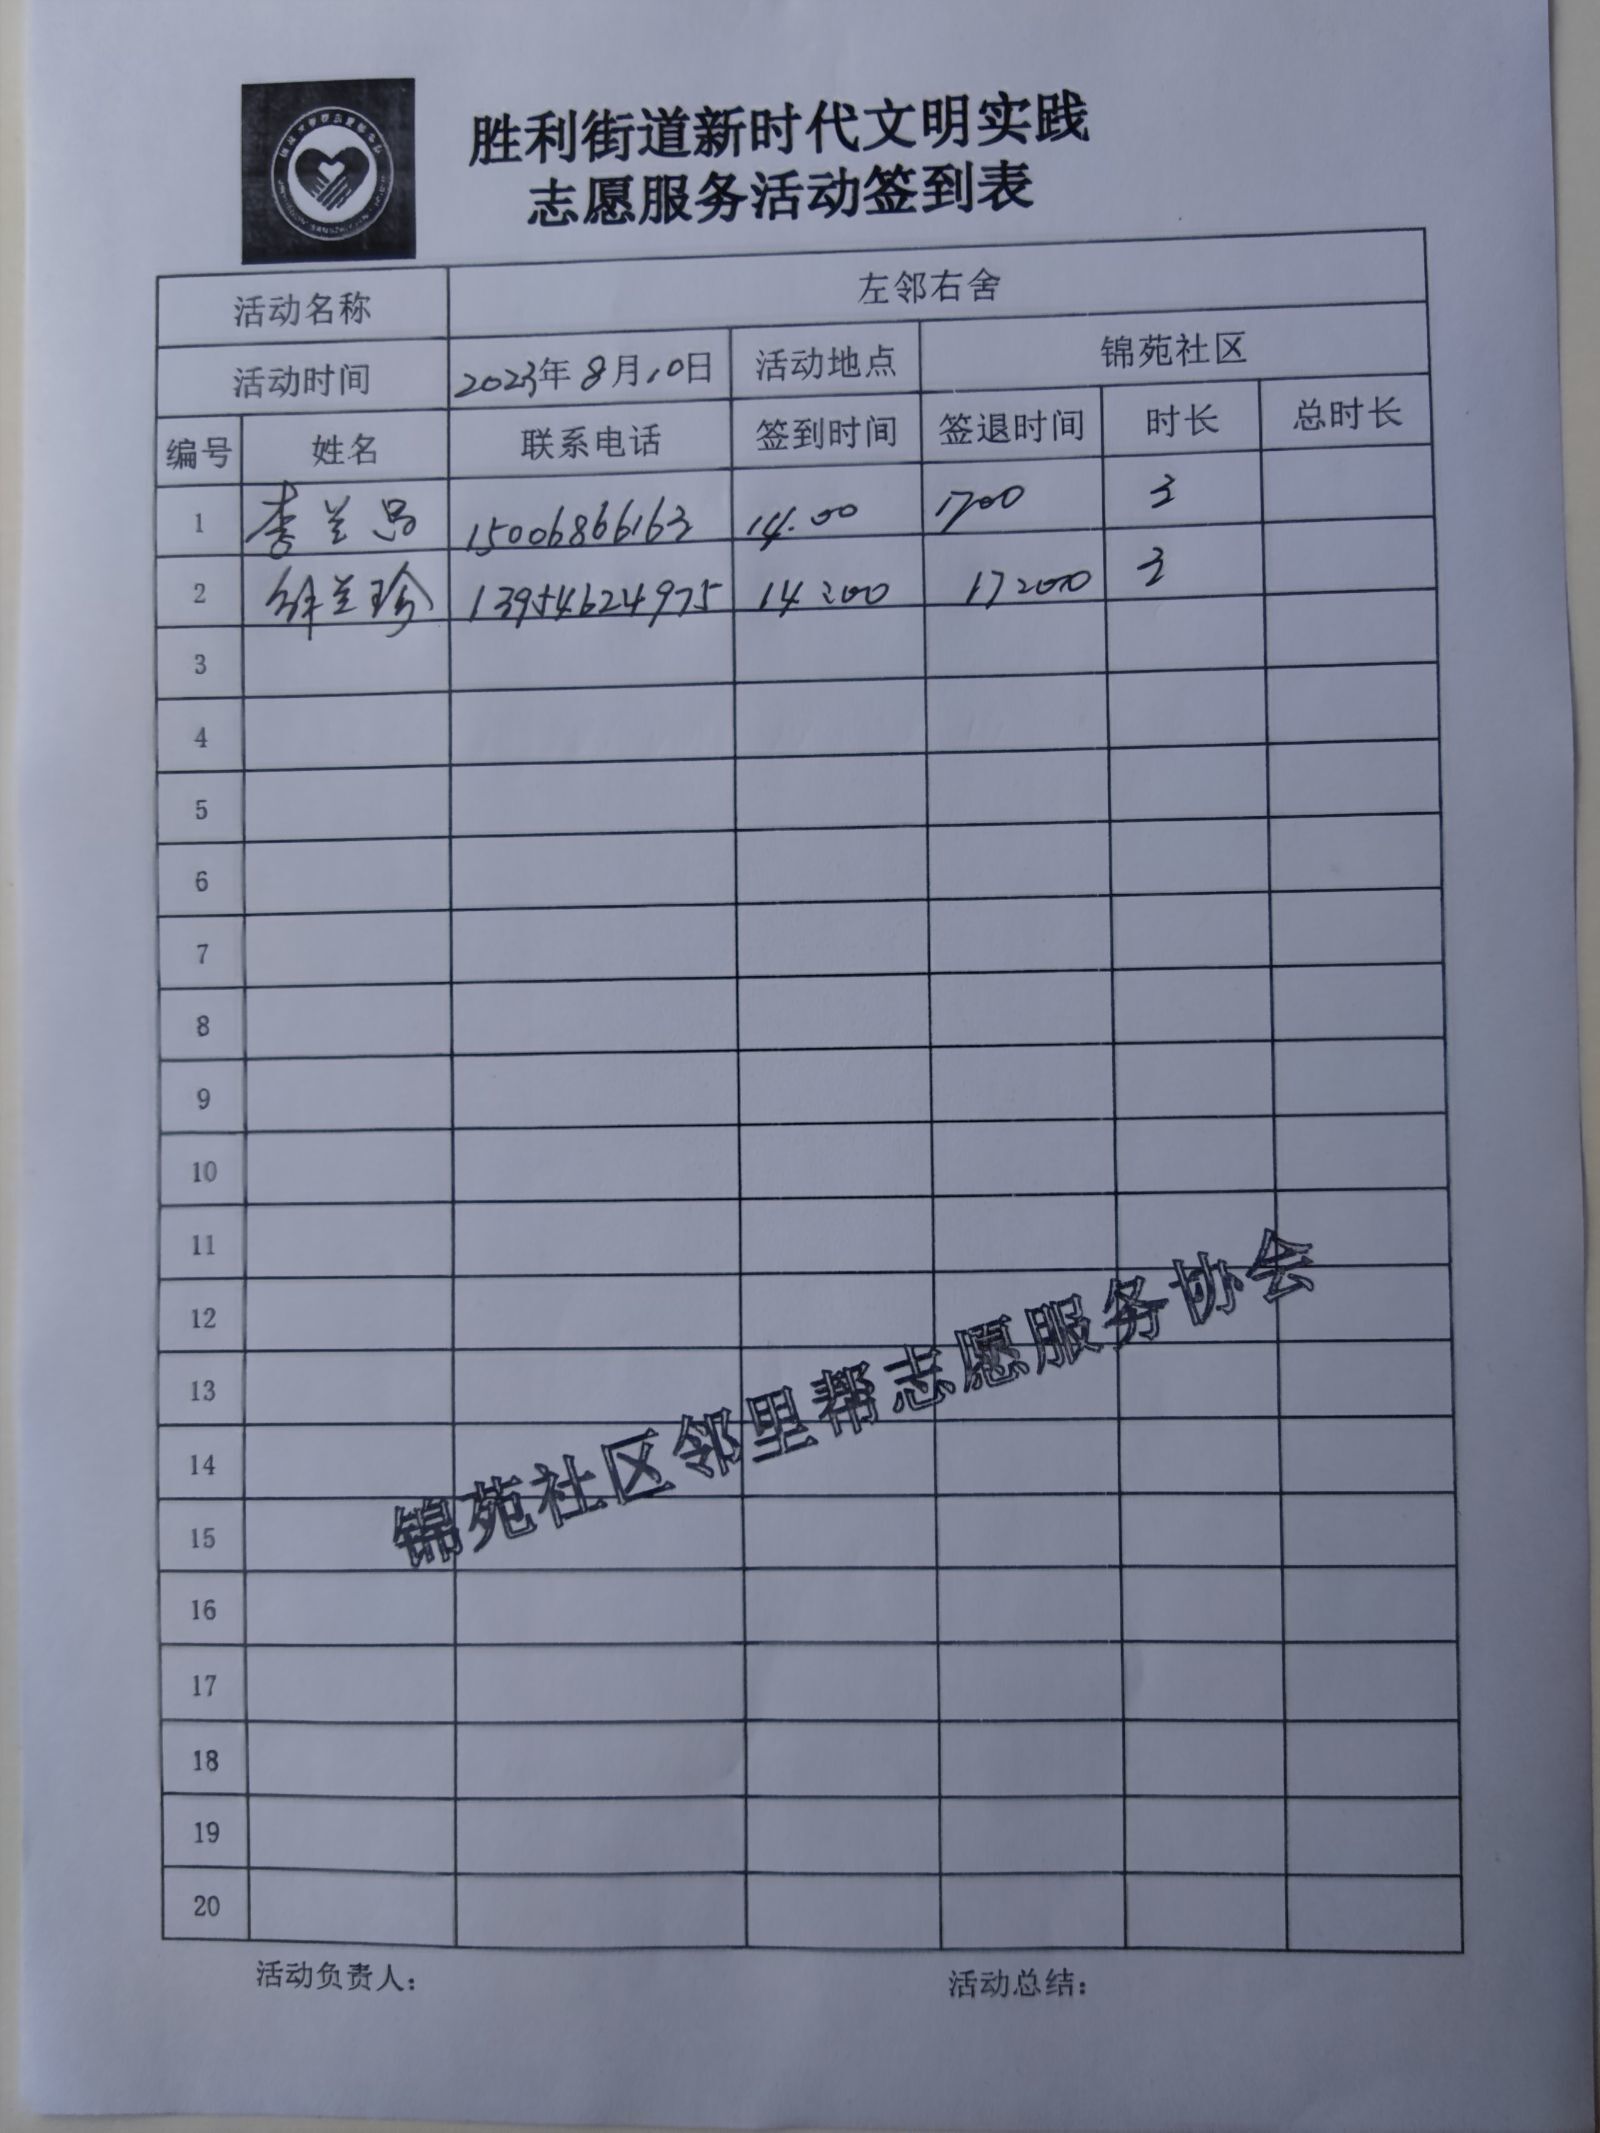 胜利街道新时代文明实践
志愿服务活动签到表
活动名称 左邻右舍
活动时间 2023年8月10日 活动地点 锦苑社区
编号 姓名 联系电话 签到时间 签退时间 时长 总时长
1 李兰 15006866163 14.00 1700 3
2 徐兰珍 13954624975 14:00 17:00 3
3
4
5
6
7
8
9
10
11
12
13
14
15
16
17
18
19
20
锦苑社区邻里帮志愿服务协会
活动负责人： 活动总结：